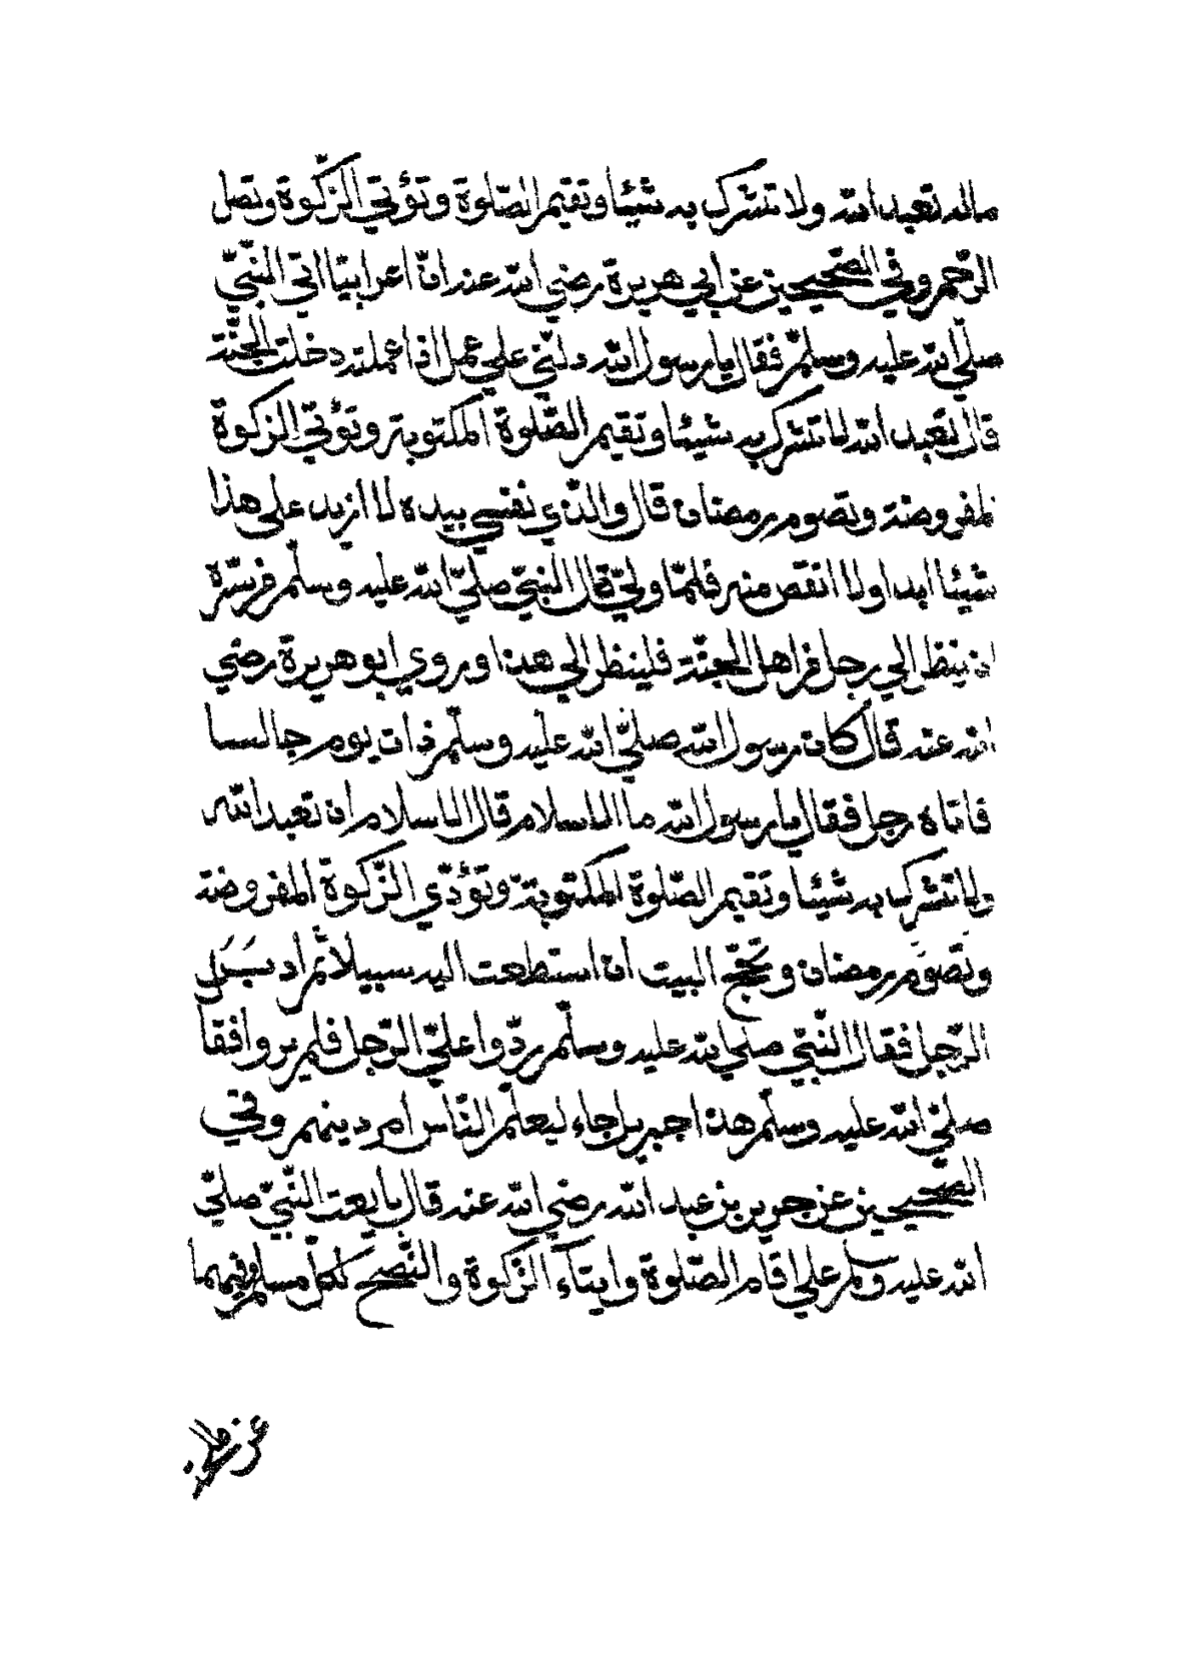 ماله تعبد الله ولا تشرك به شيئا وتقيم الصّلوة وتؤتي الزّكوة وتصل
الرّحم وفي الصّحيحين عن ابي هريرة رضي الله عنه انّ اعرابيّا اتي النّبيّ
صلّي الله عليه وسلّم فقال يا رسول الله دلّني علي عمل اذا عملته دخلت الجنّة
قال تعبد الله لا تشرك به شيئا وتقيم الصّلوة المكتوبة وتؤتي الزكوة
المفروضة وتصوم رمضان قال والّذي نفسي بيده لا ازيد على هذا
شيئا ابدا ولا انقص منه فلمّا ولّي قال النبيّ صلّي الله عليه وسلّم من سرّة
ان ينظر الي رجل من اهل الجنّة فلينظر الي هذا وروي ابو هريرة رضي
الله عنه قال كان رسول الله صلّي الله عليه وسلّم ذات يوم جالسا
فاتاه رجل فقال يا رسول الله ما الاسلام قال الاسلام ان تعبد الله
ولا تشرك به شيئا وتقيم الصّلوة المكتوبة وتؤدّي الزّكوة المفروضة
وتصوم رمضان وتحجّ البيت ان استطعت اليه سبيلا ثم اد
الرّجل فقال النّبيّ صلي الله عليه وسلّم ردّوا عليّ الرّجل فلم يروا فقا
صلّي الله عليه وسلّم هذا جبريل جاء ليعلّم النّاس امر دينهم وفي
الصّحيحين عن جرير بن عبد الله رضي الله عنه قال بايعت النّبيّ صلّي
الله عليه وسلم علي اقام الصّلوة وايتآء الزّكوة والنّصح لكلّ مسلم وفيهما
عن